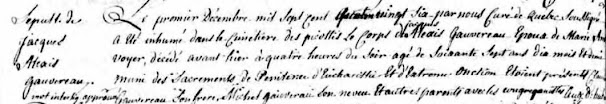 Sepult. de
Jacques
Alexis
Gauvereau.
Le premier Décembre mil Sept cent Quatrevingt Six par nous Curé de Quebec Soussigné
a été inhumé dans le Cimetière des picottés le Corps de Jacques Alexis Gauvereau Epoux de Marie
voyer, décédé avant hier à quatre heures du Soir agé de Soixante Sept ans dix mois et demi
muni des Sacrements de Penitence d'Eucharistie Et d'Extreme Onction Etoient présents
Gauvereau Son frere, Michel Gauvereau Son neveu Et autres parents avec les congreganistes